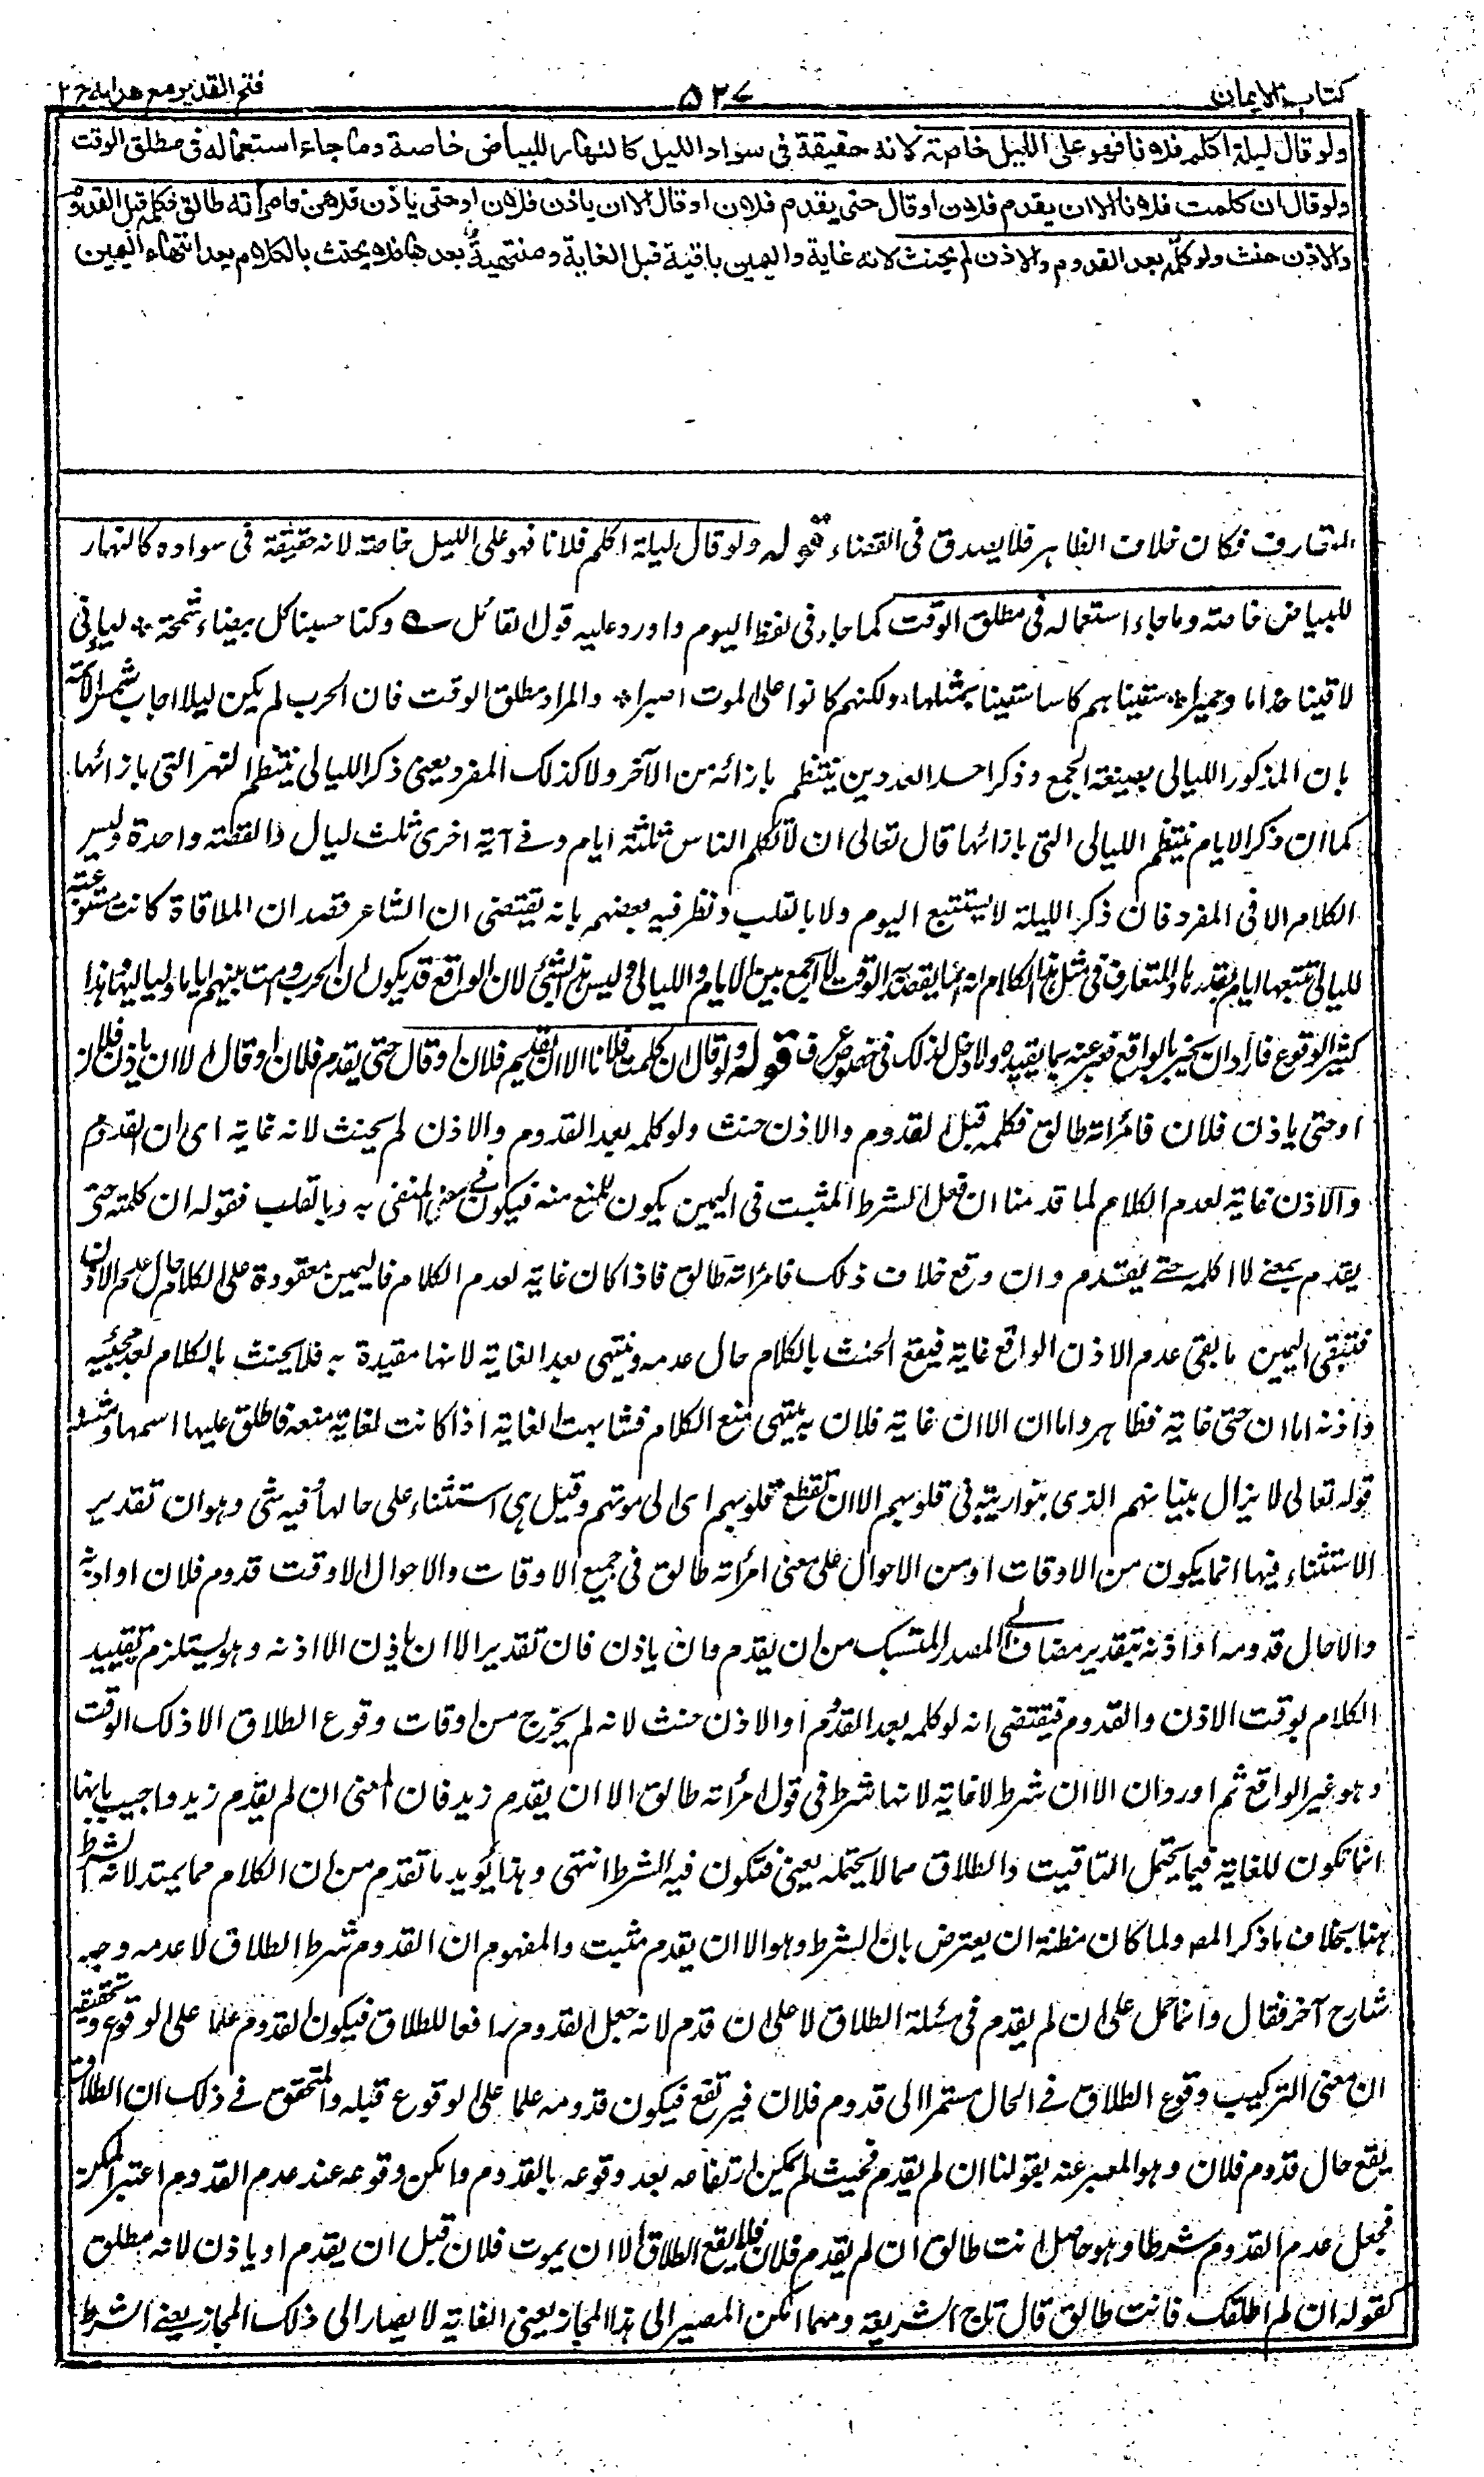 كتاب الايمان
۵۲۷
فتح القدير مع هدايه ج ۲
ولو قال ليلة اكلم فلانا فهو على الليل خاصة لانه حقيقة في سواد الليل كالنهار للبياض خاصة وما جاء استعماله في مطلق الوقت
ولو قال ان كلمت فلانا الا ان يقدم فلان او قال حتى يقدم فلان او قال الا ان ياذن فلان او حتى ياذن فلان فامرأته طالق فكلمه قبل القدوم
والاذن حنث ولو كلمه بعد القدوم والاذن لم يحنث لانه غاية واليمين باقية قبل الغاية ومنتهية بعدها فلا يحنث بالكلام بعد انتهاء اليمين
المتعارف فكان خلاف الظاهر فلا يصدق فى القضاء قوله ولو قال ليلة اكلم فلانا فهو على الليل خاصة لانه حقيقة فى سواده كالنهار
للبياض خاصة وما جاء استعماله فى مطلق الوقت كما جاء فى لفظ اليوم واورد عليه قول القائل ؎ وكنا حسبنا كل بيضاء شحمة * ليالى
لاقينا جذاما وحميرا * سقيناهم كاسا سقينا بمثلها * ولكنهم كانوا على الموت اصبرا * والمراد مطلق الوقت فان الحرب لم يكن ليلا اجاب شمس الائمة
بان المذكور الليالى بصيغة الجمع وذكر احد العددين ينتظم بازائه من الآخر ولا كذلك المفرد يعنى ذكر الليالى ينتظم النهر التى بازائها
كما ان ذكر الايام ينتظم الليالى التى بازائها قال تعالى ان لا تكلم الناس ثلثة ايام وفى آية اخرى ثلث ليال والقصة واحدة وليس
الكلام الا فى المفرد فان ذكر الليلة لا يستتبع اليوم ولا بالقلب ونظر فيه بعضهم بانه يقتضى ان الشاعر قصد ان الملاقاة كانت مستوعبة
لليالى تتبعها ايام بقدرها والمتعارف فى مثل هذا الكلام انه انما يقصد به الوقت لا الجمع بين الايام والليالى وليس هذا بشئ لان الواقع قد يكون ان الحرب دامت بينهم اياما ولياليها هذا
كثير الوقوع فاراد ان يخبر بالواقع فعبر عنه بما يفيده ولا دخل لذلك فى خصوص عرف قوله ولو قال ان كلمت فلانا الا ان يقدم فلان او قال حتى يقدم فلان او قال الا ان ياذن فلان
او حتى ياذن فلان فامرأته طالق فكلمه قبل القدوم والاذن حنث ولو كلمه بعد القدوم والاذن لم يحنث لانه غاية اى ان القدوم
والاذن غاية لعدم الكلام لما قدمنا ان فعل الشرط المثبت فى اليمين يكون للمنع منه فيكون فى معنى المنفى به وبالقلب فقوله ان كلمته حتى
يقدم بمعنى لا اكلمه حتى يقدم وان وقع خلاف ذلك فامرأته طالق فاذا كان غاية لعدم الكلام فاليمين معقودة على الكلام حال عدم الاذن
فتبقى اليمين ما بقى عدم الاذن الواقع غاية فيقع الحنث بالكلام حال عدمه وينتهى بعد الغاية لانها مقيدة به فلا يحنث بالكلام بعد مجيئه
واذنه اما ان حتى غاية فظاهر واما ان الا ان غاية فلان به ينتهى منع الكلام فشابهت الغاية اذا كانت لغاية منعه فاطلق عليها اسمها ومثله
قوله تعالى لا يزال بنيانهم الذى بنوا ريبة فى قلوبهم الا ان تقطع قلوبهم اى الى موتهم وقيل هى استثناء على حالها فيه شئ وهو ان تقدير
الاستثناء فيها انما يكون من الاوقات او من الاحوال على معنى امرأته طالق فى جميع الاوقات والاحوال الا وقت قدوم فلان او اذنه
والا حال قدومه او اذنه بتقدير مضاف الى المصدر المنسبك من ان يقدم وان ياذن فان تقدير الا ان ياذن الا اذنه وهو يستلزم تقييد
الكلام بوقت الاذن والقدوم فيقتضى انه لو كلمه بعد القدوم او الاذن حنث لانه لم يخرج من اوقات وقوع الطلاق الا ذلك الوقت
وهو غير الواقع ثم اورد ان الا ان شرط لا غاية لانها شرط فى قول امرأته طالق الا ان يقدم زيد فان المعنى ان لم يقدم زيد واجيب بانها
انما تكون للغاية فيما يحتمل التاقيت والطلاق مما لا يحتمله يعنى فتكون فيه الشرط انتهى وهذا يؤيد ما تقدم من ان الكلام مما يمتد لانه الشرط
هنا بخلاف ما ذكر المص ولما كان مظنة ان يعترض بان الشرط وهو الا ان يقدم مثبت والمفهوم ان القدوم شرط الطلاق لا عدمه وجهه
شارح آخر فقال وانما حمل على ان لم يقدم فى مسئلة الطلاق لا على ان قدم لانه جعل القدوم رافعا للطلاق فيكون القدوم علما على الوقوع وتحقيقه
ان معنى التركيب وقوع الطلاق فى الحال مستمرا الى قدوم فلان فيرتفع فيكون قدومه علما على الوقوع قبله والمتحقق فى ذلك ان الطلاق
يقع حال قدوم فلان وهو المعبر عنه بقولنا ان لم يقدم فحيث لم يمكن ارتفاعه بعد وقوعه بالقدوم وامكن وقوعه عند عدم القدوم اعتبر الممكن
فجعل عدم القدوم شرطا وهو حاصل انت طالق ان لم يقدم فلان فلا يقع الطلاق الا ان يموت فلان قبل ان يقدم او ياذن لانه مطلق
كقوله ان لم اطلقك فانت طالق قال تاج الشريعة ومهما امكن المصير الى هذا المجاز يعنى الغاية لا يصار الى ذلك المجاز يعنى الشرط